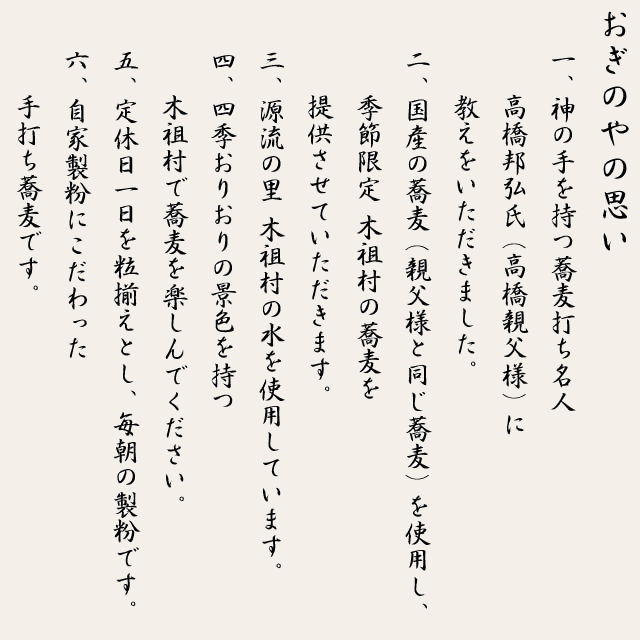 おぎのやの思い
一、神の手を持つ蕎麦打ち名人
高橋邦弘氏（高橋親父様）に
教えをいただきました。
二、国産の蕎麦（親父様と同じ蕎麦）を使用し、
季節限定 木祖村の蕎麦を
提供させていただきます。
三、源流の里 木祖村の水を使用しています。
四、四季おりおりの景色を持つ
木祖村で蕎麦を楽しんでください。
五、定休日一日を粒揃えとし、毎朝の製粉です。
六、自家製粉にこだわった
手打ち蕎麦です。